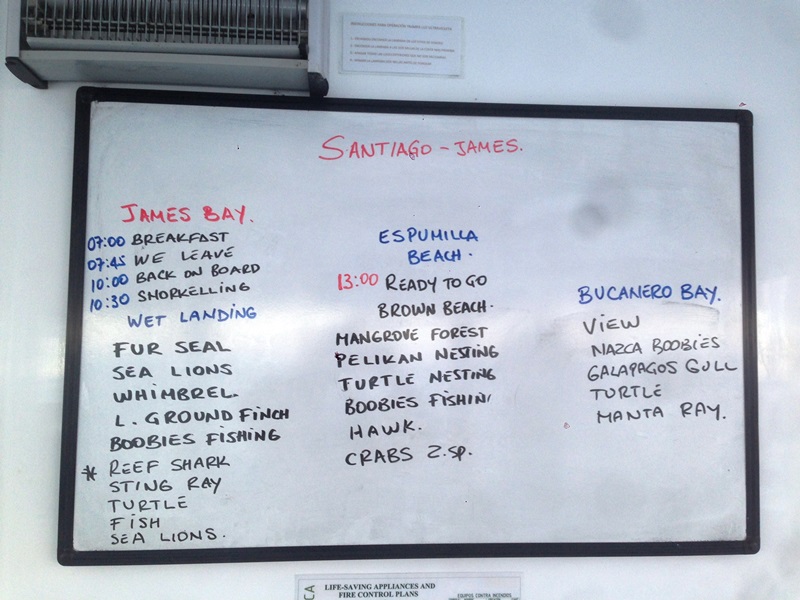 SANTIAGO - JAMES.
JAMES BAY.
07:00 BREAKFAST
07:45 WE LEAVE
10:00 BACK ON BOARD
10:30 SNORKELLING
WET LANDING
FUR SEAL
SEA LIONS
WHIMBREL.
L. GROUND FINCH
BOOBIES FISHING
* REEF SHARK
STING RAY
TURTLE
FISH
SEA LIONS.
ESPUMILLA
BEACH.
13:00 READY TO GO
BROWN BEACH.
MANGROVE FOREST
PELIKAN NESTING
TURTLE NESTING
BOOBIES FISHIN
HAWK.
CRABS 2.sp.
BUCANERO BAY.
VIEW
NAZCA BOOBIES
GALAPAGOS GULL
TURTLE
MANTA RAY.
LIFE-SAVING APPLIANCES AND
FIRE CONTROL PLANS
EQUIPOS CONTRA INCENDIOS